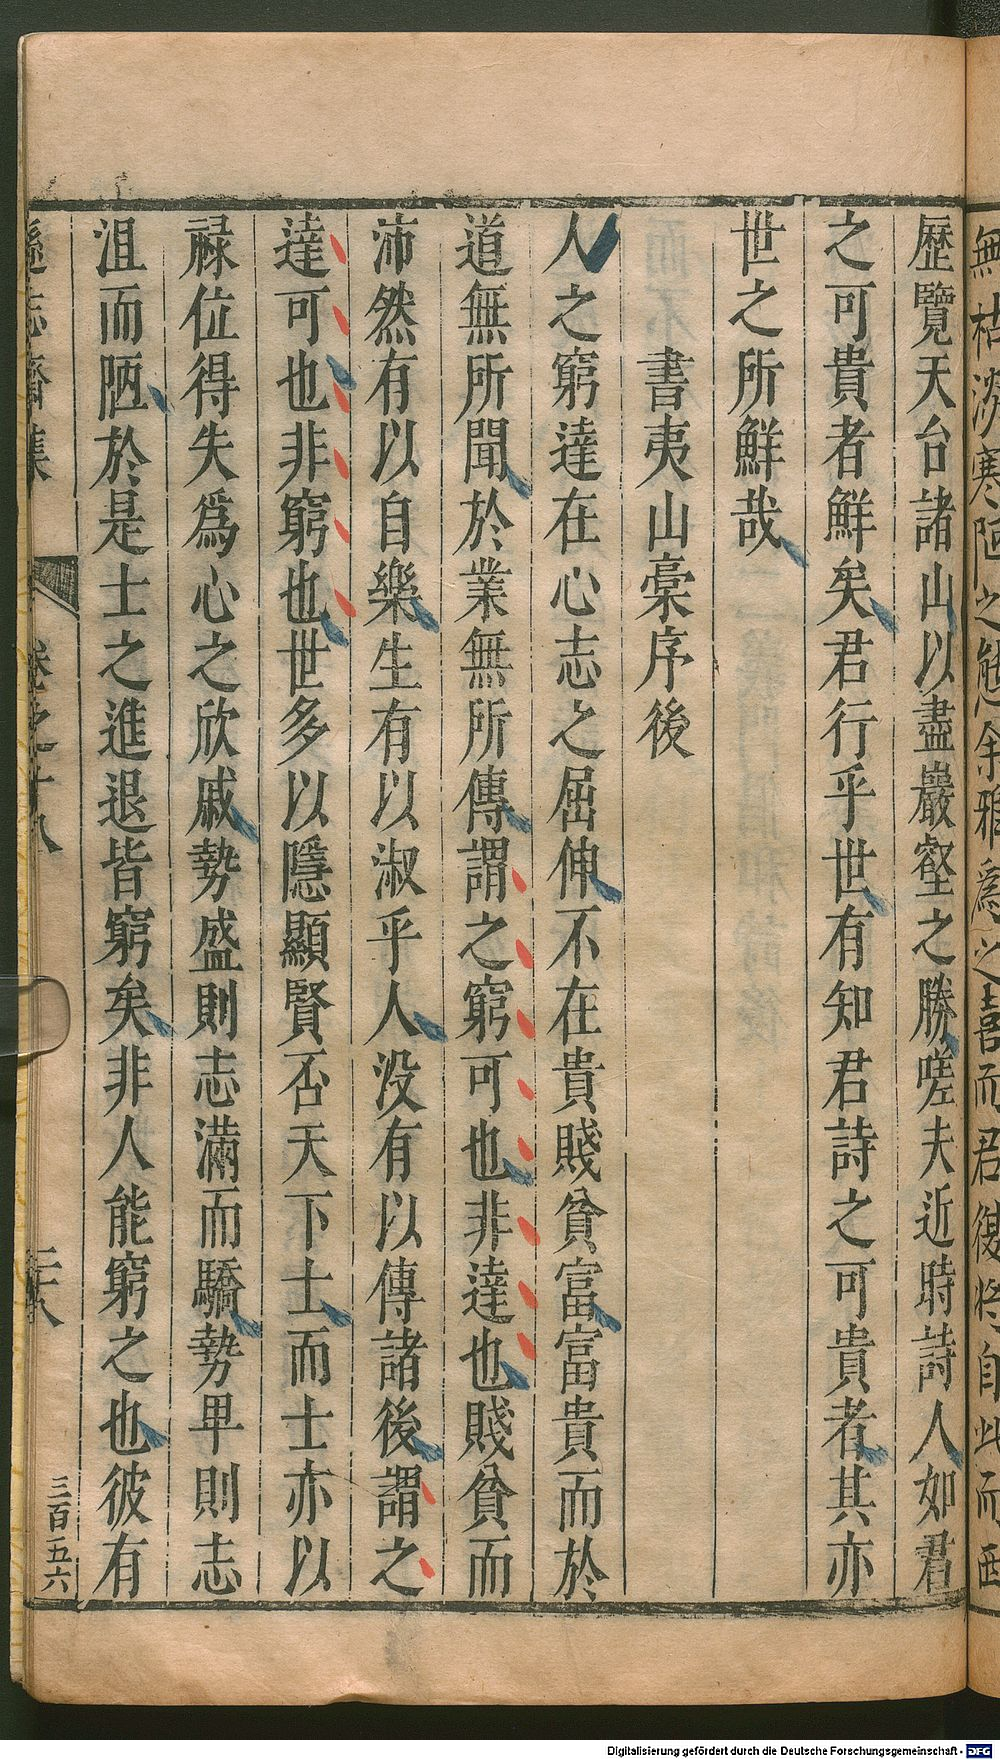 無枯淡寒陋之態余雅爲之喜而君復將自此而西
歷覽天台諸山以盡巖壑之勝嗟夫近時詩人如君
之可貴者鮮矣君行乎世有知君詩之可貴者其亦
世之所鮮哉
書夷山稾序後
人之窮達在心志之屈伸不在貴賤貧富富貴而於
道無所聞於業無所傳謂之窮可也非達也賤貧而
沛然有以自樂生有以淑乎人没有以傳諸後謂之
達可也非窮也世多以隱顯賢否天下士而士亦以
祿位得失爲心之欣戚勢盛則志滿而驕勢卑則志
沮而陋於是士之進退皆窮矣非人能窮之也彼有
遜志齋集 卷之十八 二十八 三百五六
Digitalisierung gefördert durch die Deutsche Forschungsgemeinschaft - DFG